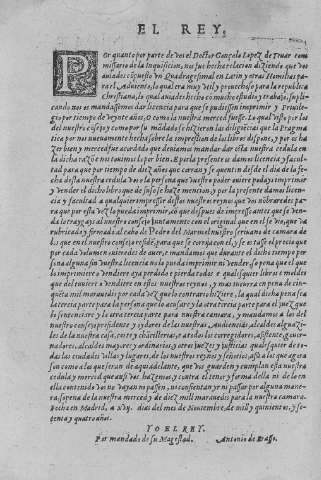 EL REY.
POr quanto por parte de vos el Doctor Gonçalo de Tovar co
missario de la Inquisicion, nos fue hecha relacion diziendo que vos
auiades cõpuesto vn Quadragesimal en Latin y otras Homilias para
el Aduiento, lo qual era muy vtil y prouechoso para la republica
Christiana, lo qual auiades hecho cõ mucho estudio y trabajo, supli
cando nos os mandassemos dar licencia para que se pudiessen imprimir y Priuile
gio por tiempo de veynte años, O como la nuestra merced fuesse. Lo qual visto por los
del nuestro cõsejo y como por su mãdado se hizieron las diligencias que la Pragma
tica por nos nueuamente hecha sobre la impression de los libros dispone, y por os ha
zer bien y merced fue acordado que deuiamos mandar dar esta nuestra cedula en
la dicha razõ e nos touimos lo por bien. E por la presente os damos licencia y facul
tad para que por tiempo de diez años que corran y se quenten desde el dia de la fe
cha desta nuestra cedula vos o la persona que vuestro poder ouiere podays imprimir
y vender el dicho libro que de suso se haze mencion y por la presente damos licencia
y facultad a qualquier impressor destos nuestros reynos que vos nõbraredes pa
ra que por esta vez lo pueda imprimir, cõ que despues de impresso antes que se ven
da lo traygays al nuestro consejo juntamente con el original que en el se vio, que va
rubricado y firmado al cabo de Pedro del Marmol nuestro scriuano de camara de
los que en el nuestro consejo residē, para que se corrija con el, y se os tasse el precio que
por cada volumen ouieredes de auer, e mandamos que durante el dicho tiempo per
sona alguna sin vuestra licencia no lo pueda imprimir ni vender, so pena que el que
lo imprimiere o vendiere aya perdido e pierda todos e qualesquier libros e moldes
que del tuuiere o vendiere en estos nuestros reynos, y mas incurra en pena de cin
quēta mil marauedis por cada vez que lo contrario hiziere, la qual dicha pena sea
la tercia parte para la persona que lo acusare y la otra tercia parte para el juez que
lo sentenciare y la otra tercia parte para nuestra camara, y mandamos a los del
nuestro consejo presidente y oydores de las nuestras Audiencias, alcaldes alguazi
les de la nuestra casa, corte y chãcillerias, e a todos los corregidores, assistente, gouer
nadores, alcaldes mayores y ordinarios, y otros juezes y justicias qualesquier de to
das las ciudades villas y lugares, de los nuestros reynos y señorios, assi a los que agora
son como a los que seran de aqui adelante, que vos guarden y cumplan esta nuestra
cedula y merced que ansi vos hazemos, y contra el tenor y forma della y de lo en
ella contenido vos no vayan ni passen, ni consientan yr ni passar por alguna mane
ra, so pena de la nuestra merced y de diez mill marauedis para la nuestra camara.
Fecha en Madrid, a xvj. dias del mes de Nouiembre, de mill y quinientos, y se
tenta y quatro años.
YO EL REY.
Por mandado de su Magestad. Antonio de Erasso.